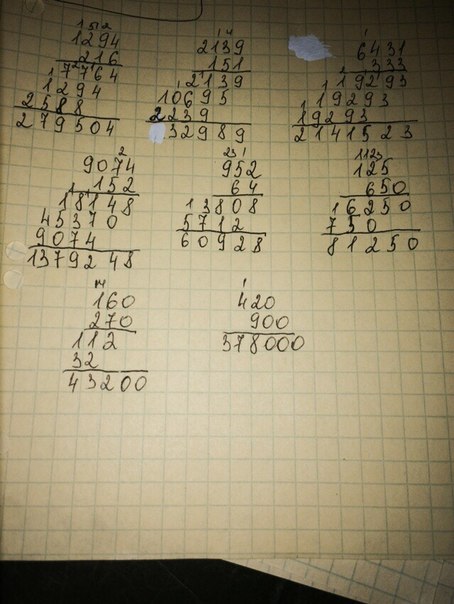 1294
216
7764
1294
2588
279504
1 4
2139
151
2139
10695
2239
32989
1
6431
333
19293
19293
19293
2141523
2
9074
152
18148
45370
9074
1379248
23 1
952
64
3808
5712
60928
1123
125
650
6250
750
81250
160
270
112
32
43200
1
420
900
378000